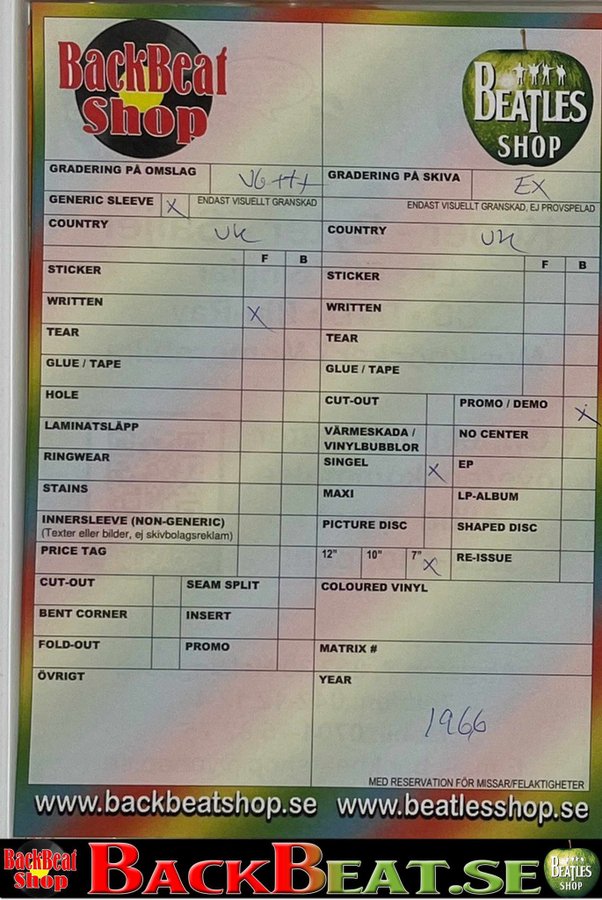 BackBeat
Shop
BEATLES
SHOP
GRADERING PÅ OMSLAG VG+++
GRADERING PÅ SKIVA EX
GENERIC SLEEVE X ENDAST VISUELLT GRANSKAD
ENDAST VISUELLT GRANSKAD, EJ PROVSPELAD
COUNTRY UK
COUNTRY UK
F B
F B
STICKER
STICKER
WRITTEN X
WRITTEN
TEAR
TEAR
GLUE / TAPE
GLUE / TAPE
HOLE
CUT-OUT PROMO / DEMO X
LAMINATSLÄPP
VÄRMESKADA /
VINYLBUBBLOR
NO CENTER
RINGWEAR
SINGEL X EP
STAINS
MAXI LP-ALBUM
INNERSLEEVE (NON-GENERIC)
(Texter eller bilder, ej skivbolagsreklam)
PICTURE DISC SHAPED DISC
PRICE TAG
12" 10" 7" X RE-ISSUE
CUT-OUT SEAM SPLIT
COLOURED VINYL
BENT CORNER INSERT
FOLD-OUT PROMO
MATRIX #
ÖVRIGT
YEAR
1966
MED RESERVATION FÖR MISSAR/FELAKTIGHETER
www.backbeatshop.se www.beatlesshop.se
BackBeat
Shop
BACKBEAT.SE
BEATLES
SHOP